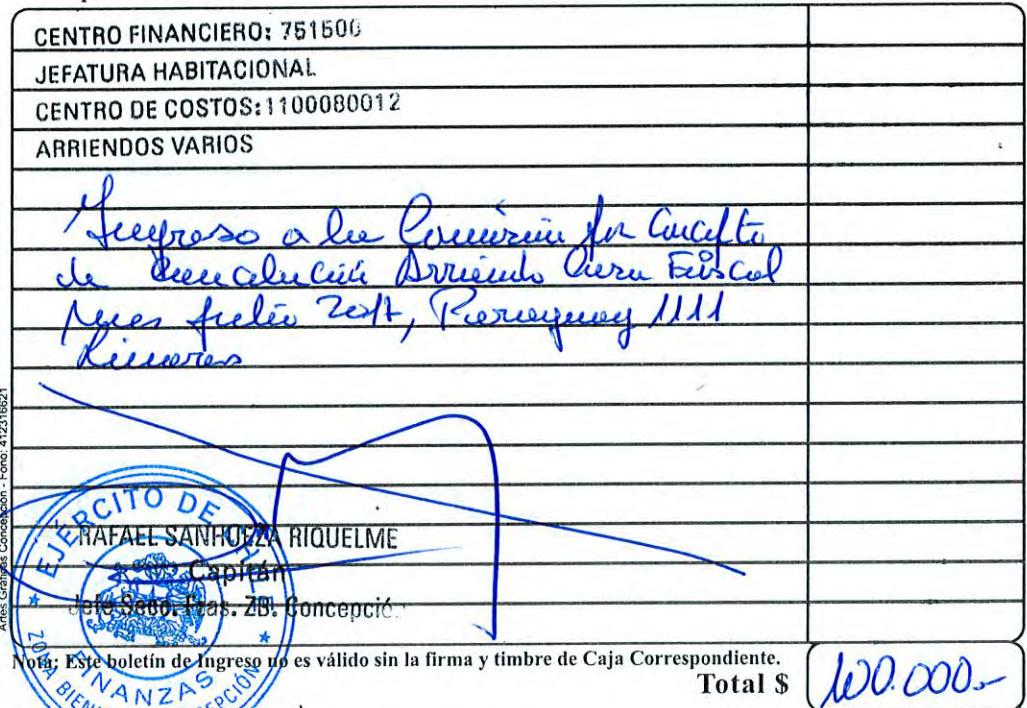 CENTRO FINANCIERO: 751500
JEFATURA HABITACIONAL
CENTRO DE COSTOS:1100080012
ARRIENDOS VARIOS
Ingreso a la Comisión por Concepto
de Cancelación Arriendo Casa Fiscal
Mes Julio 2017, Paraguay 1111
Linares
Artes Gráficas Concepción - Fono: 412316621
EJÉRCITO DE CHILE
RAFAEL SANHUEZA RIQUELME
Capitán
Jefe Secc. Fzas. ZB. Concepción
Nota: Este boletín de Ingreso no es válido sin la firma y timbre de Caja Correspondiente.
FINANZAS
Total $ 100.000.-